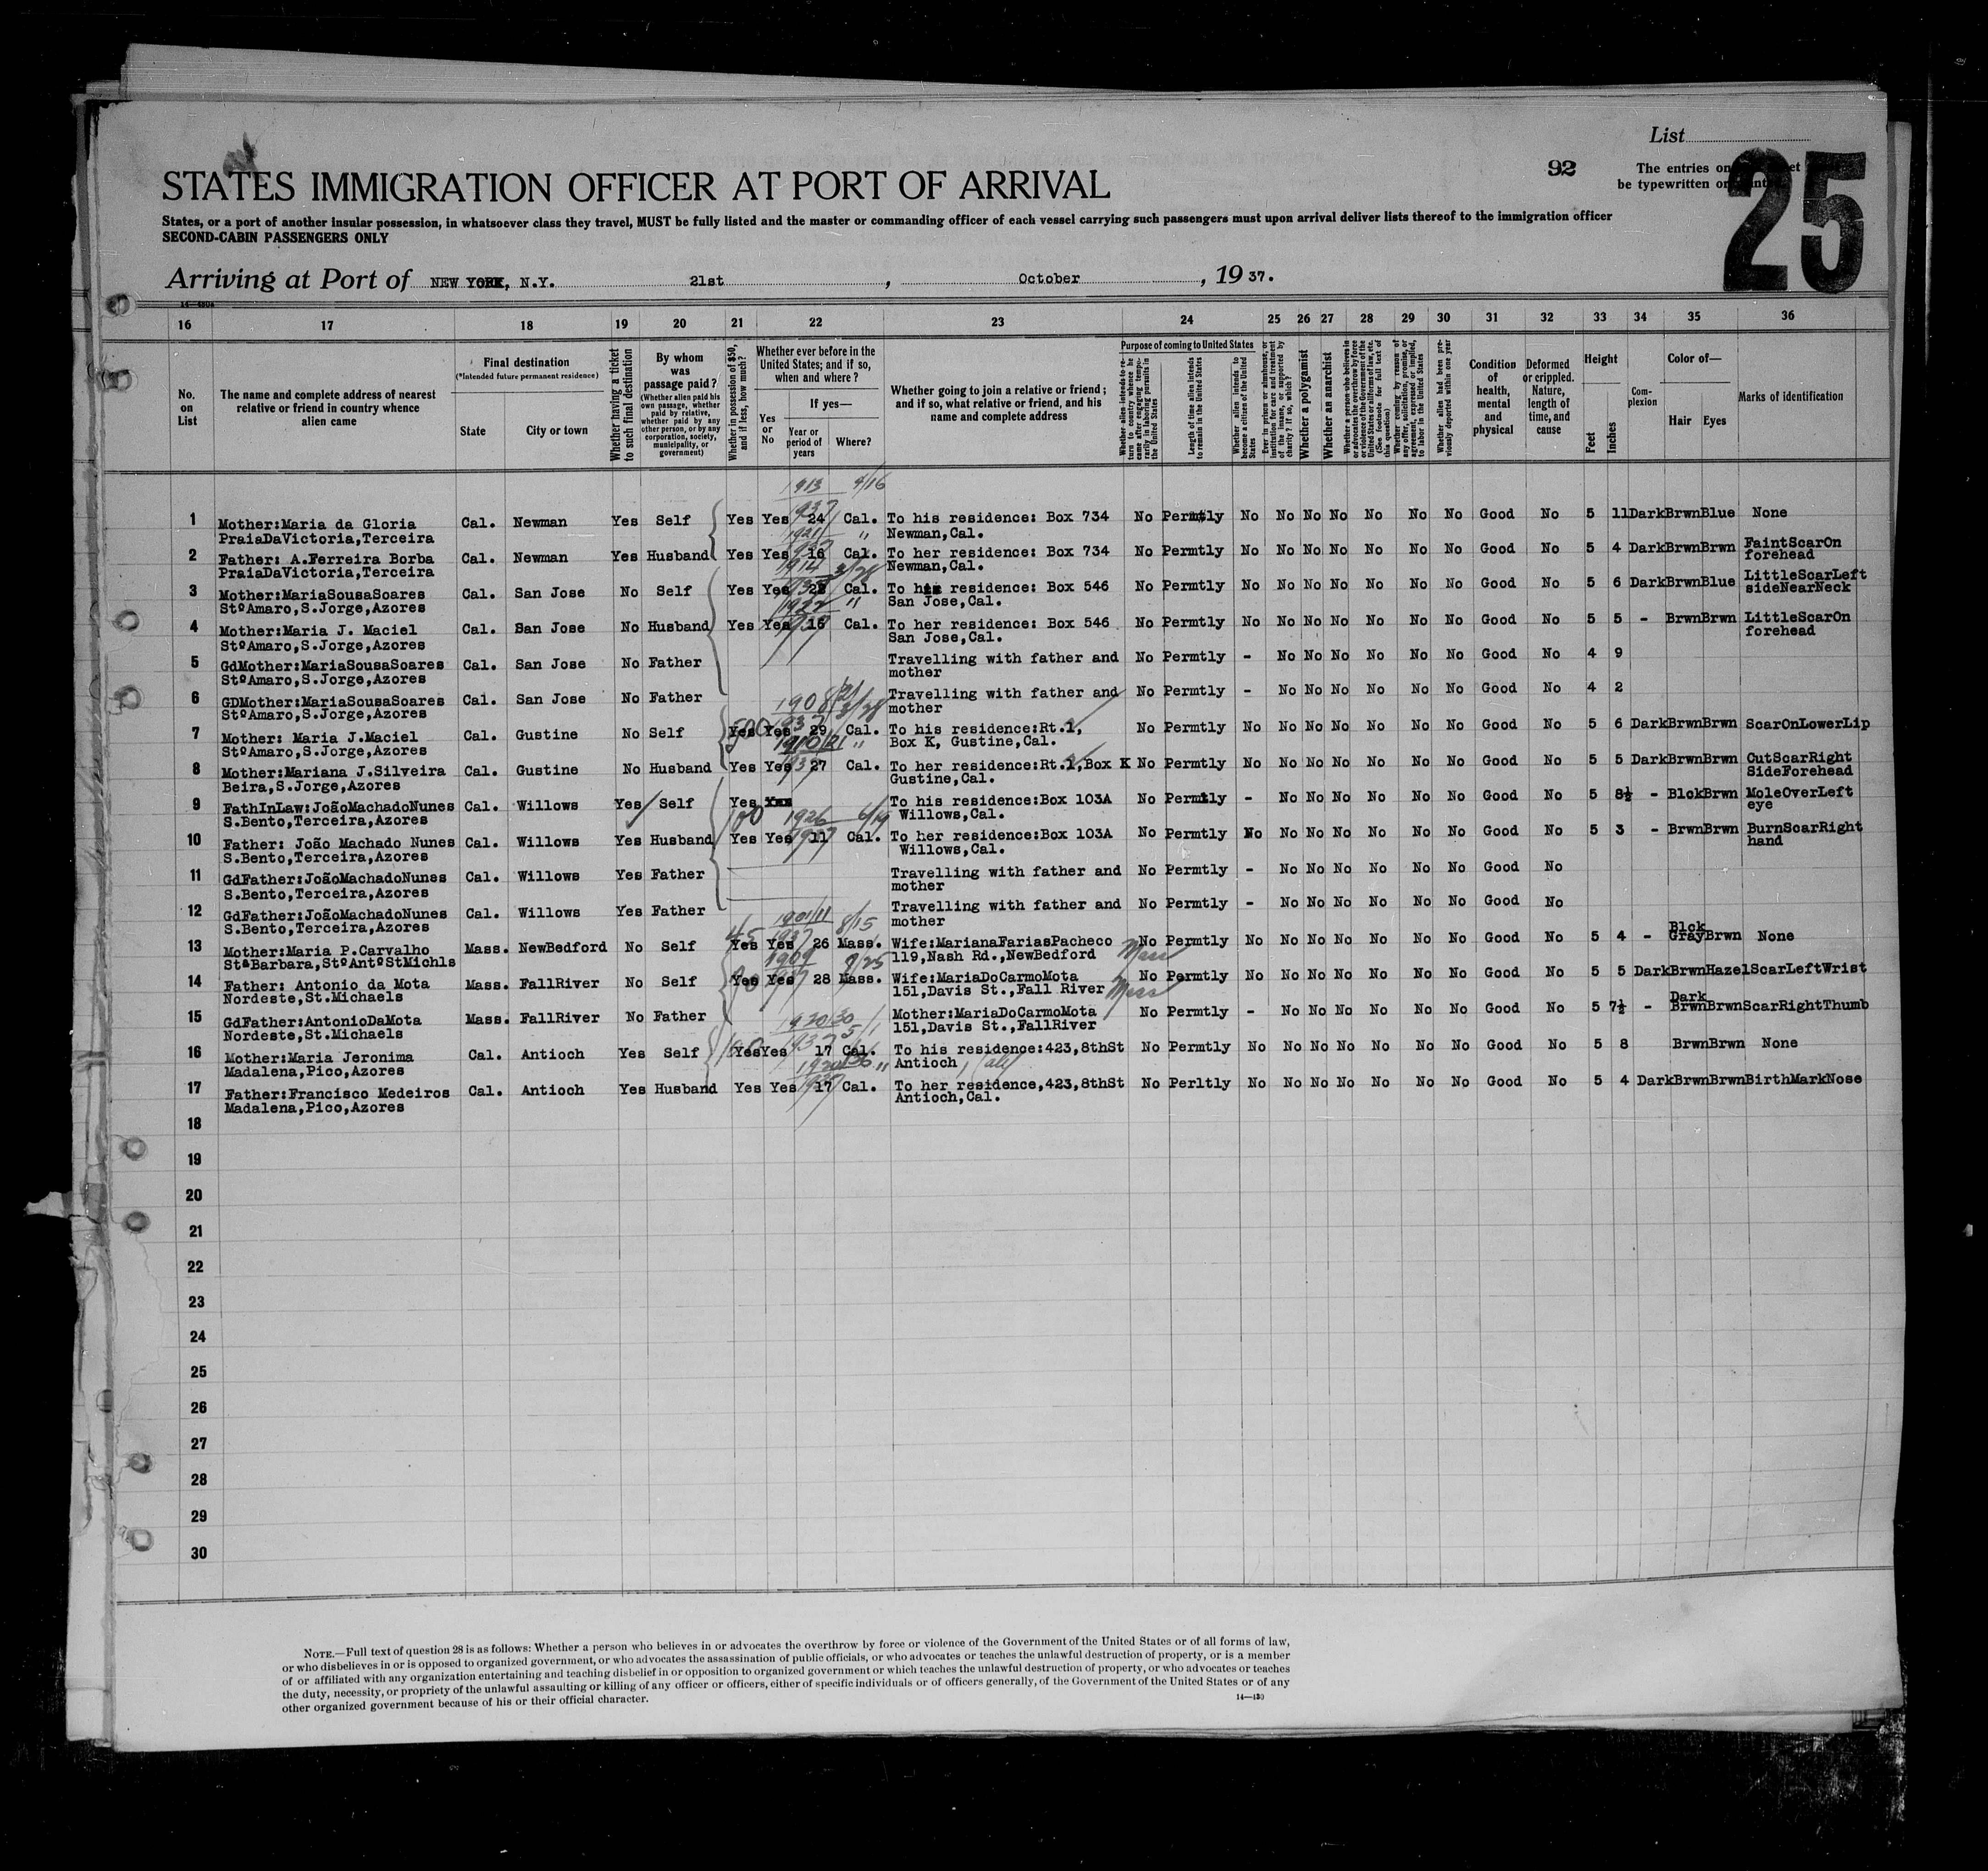 List
92
The entries on
be typewritten or
25
STATES IMMIGRATION OFFICER AT PORT OF ARRIVAL
States, or a port of another insular possession, in whatsoever class they travel, MUST be fully listed and the master or commanding officer of each vessel carrying such passengers must upon arrival deliver lists thereof to the immigration officer
SECOND-CABIN PASSENGERS ONLY
Arriving at Port of NEW YORK, N.Y. 21st, October, 1937.
16 17 18 19 20 21 22 23 24 25 26 27 28 29 30 31 32 33 34 35 36
No. on List
The name and complete address of nearest relative or friend in country whence alien came
Final destination
(*Intended future permanent residence)
State City or town
Whether having a ticket to such final destination
By whom was passage paid?
(Whether alien paid his own passage, whether paid by relative, whether paid by any other person, or by any corporation, society, municipality, or government)
Whether in possession of $50, and if less, how much?
Whether ever before in the United States; and if so, when and where?
Yes or No
If yes—
Year or period of years
Where?
Whether going to join a relative or friend; and if so, what relative or friend, and his name and complete address
Purpose of coming to United States
Whether alien intends to return to country whence he came after engaging temporarily in laboring pursuits in the United States
Length of time alien intends to remain in the United States
Whether alien intends to become a citizen of the United States
Ever in prison or almshouse, or institution for care and treatment of the insane, or supported by charity? If so, which?
Whether a polygamist
Whether an anarchist
Whether a person who believes in or advocates the overthrow by force or violence of the Government of the United States or all forms of law, etc. (See footnote for full text of this question)
Whether coming by reason of any offer, solicitation, promise, or agreement, expressed or implied, to labor in the United States
Whether alien had been previously deported within one year
Condition of health, mental and physical
Deformed or crippled. Nature, length of time, and cause
Height
Feet Inches
Complexion
Color of—
Hair Eyes
Marks of identification
1913 4/16
1 Mother:Maria da Gloria Cal. Newman Yes Self Yes Yes 24 Cal. To his residence: Box 734 No Permtly No No No No No No No Good No 5 11 Dark Brwn Blue None
PraiaDaVictoria,Terceira Newman,Cal.
2 Father: A.Ferreira Borba Cal. Newman Yes Husband Yes Yes 16 Cal. To her residence: Box 734 No Permtly No No No No No No No Good No 5 4 Dark Brwn Brwn FaintScarOn
PraiaDaVictoria,Terceira Newman,Cal. forehead
3 Mother:MariaSousaSoares Cal. San Jose No Self Yes Yes Cal. To his residence: Box 546 No Permtly No No No No No No No Good No 5 6 Dark Brwn Blue LittleScarLeft
StºAmaro,S.Jorge,Azores San Jose,Cal. sideNearNeck
4 Mother:Maria J. Maciel Cal. San Jose No Husband Yes Yes 16 Cal. To her residence: Box 546 No Permtly No No No No No No No Good No 5 5 - Brwn Brwn LittleScarOn
StºAmaro,S.Jorge,Azores San Jose,Cal. forehead
5 GdMother:MariaSousaSoares Cal. San Jose No Father Travelling with father and No Permtly - No No No No No No Good No 4 9
StºAmaro,S.Jorge,Azores mother
6 GDMother:MariaSousaSoares Cal. San Jose No Father Travelling with father and No Permtly - No No No No No No Good No 4 2
StºAmaro,S.Jorge,Azores mother
7 Mother: Maria J.Maciel Cal. Gustine No Self Yes Yes 29 Cal. To his residence:Rt.1, No Permtly No No No No No No No Good No 5 6 Dark Brwn Brwn ScarOnLowerLip
StºAmaro,S.Jorge,Azores Box K, Gustine,Cal.
8 Mother:Mariana J.Silveira Cal. Gustine No Husband Yes Yes 27 Cal. To her residence:Rt.1,Box K No Permtly No No No No No No No Good No 5 5 Dark Brwn Brwn CutScarRight
Beira,S.Jorge,Azores Gustine,Cal. SideForehead
9 FathInLaw:JoãoMachadoNunes Cal. Willows Yes Self Yes To his residence:Box 103A No Permtly - No No No No No No Good No 5 8½ - Blck Brwn MoleOverLeft
S.Bento,Terceira,Azores Willows,Cal. eye
10 Father: João Machado Nunes Cal. Willows Yes Husband Yes Yes 11 Cal. To her residence:Box 103A No Permtly No No No No No No No Good No 5 3 - Brwn Brwn BurnScarRight
S.Bento,Terceira,Azores Willows,Cal. hand
11 GdFather:JoãoMachadoNunes Cal. Willows Yes Father Travelling with father and No Permtly - No No No No No No Good No
S.Bento,Terceira,Azores mother
12 GdFather:JoãoMachadoNunes Cal. Willows Yes Father Travelling with father and No Permtly - No No No No No No Good No
S.Bento,Terceira,Azores mother
13 Mother:Maria P.Carvalho Mass. NewBedford No Self Yes Yes 26 Mass. Wife:MarianaFariasPacheco No Permtly No No No No No No No Good No 5 4 - Blck Gray Brwn None
StªBarbara,StºAntºStMichls 119,Nash Rd.,NewBedford Mass
14 Father: Antonio da Mota Mass. FallRiver No Self Yes Yes 28 Mass. Wife:MariaDoCarmoMota No Permtly No No No No No No No Good No 5 5 Dark Brwn Hazel ScarLeftWrist
Nordeste,St.Michaels 151,Davis St.,Fall River Mass
15 GdFather:AntonioDaMota Mass. FallRiver No Father Mother:MariaDoCarmoMota No Permtly - No No No No No No Good No 5 7½ - Dark Brwn Brwn ScarRightThumb
Nordeste,St.Michaels 151,Davis St.,FallRiver
16 Mother:Maria Jeronima Cal. Antioch Yes Self Yes Yes 17 Cal. To his residence:423,8thSt No Permtly No No No No No No No Good No 5 8 Brwn Brwn None
Madalena,Pico,Azores Antioch, Calif
17 Father:Francisco Medeiros Cal. Antioch Yes Husband Yes Yes 17 Cal. To her residence,423,8thSt No Perltly No No No No No No No Good No 5 4 Dark Brwn Brwn BirthMarkNose
Madalena,Pico,Azores Antioch,Cal.
18
19
20
21
22
23
24
25
26
27
28
29
30
NOTE.—Full text of question 28 is as follows: Whether a person who believes in or advocates the overthrow by force or violence of the Government of the United States or of all forms of law,
or who disbelieves in or is opposed to organized government, or who advocates the assassination of public officials, or who advocates or teaches the unlawful destruction of property, or is a member
of or affiliated with any organization entertaining and teaching disbelief in or opposition to organized government or which teaches the unlawful destruction of property, or who advocates or teaches
the duty, necessity, or propriety of the unlawful assaulting or killing of any officer or officers, either of specific individuals or of officers generally, of the Government of the United States or of any
other organized government because of his or their official character.
14—430